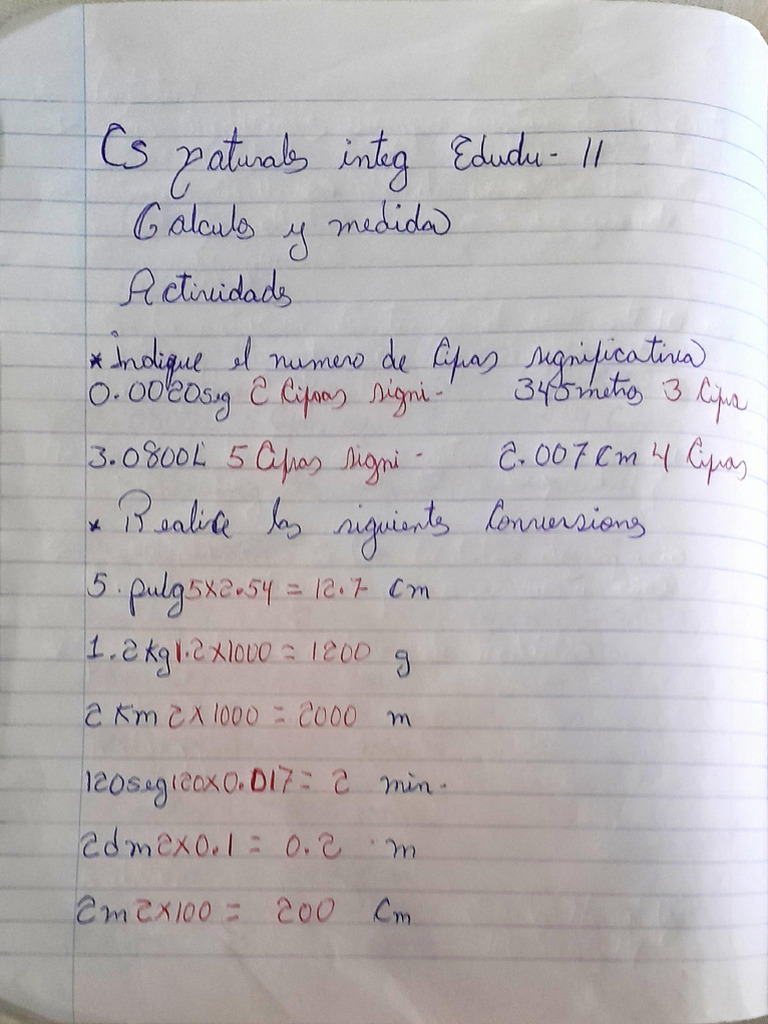 Cs naturales integ Edudu - 11
Calculo y medida
Actividades
* Indique el numero de Cifras significativa
0.0020seg 2 Cifras signi- 345metros 3 Cifra
3.0800L 5 Cifras signi - 2.007 Cm 4 Cifras
* Realice las siguientes Conversiones
5. pulg5x2.54 = 12.7 Cm
1.2kg1.2x1000 = 1200 g
2 Km 2 x 1000 = 2000 m
120seg120x0.017= 2 min.
2dm2x0.1 = 0.2 m
2m2x100 = 200 Cm